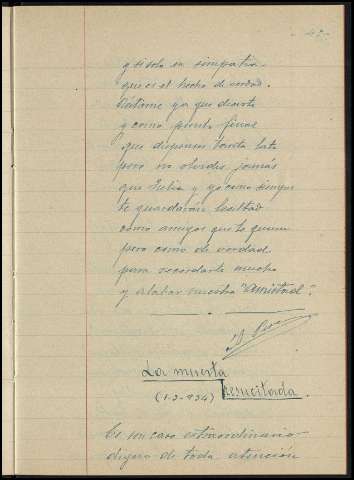 y si solo en simpatía
que es el hecho de verdad.
ya que decirte
y como pienso finar
que dispenses tanta lata
pero no olvides jamás
que Julia y yo como siempre
te guardarán lealtad
como amigos que te quieren
pero como de verdad
para recordarte mucho
y alabar nuestra "Amistad".
La muerta
resucitada.
(1-3-934)
Es un caso extraordinario
digno de toda atención